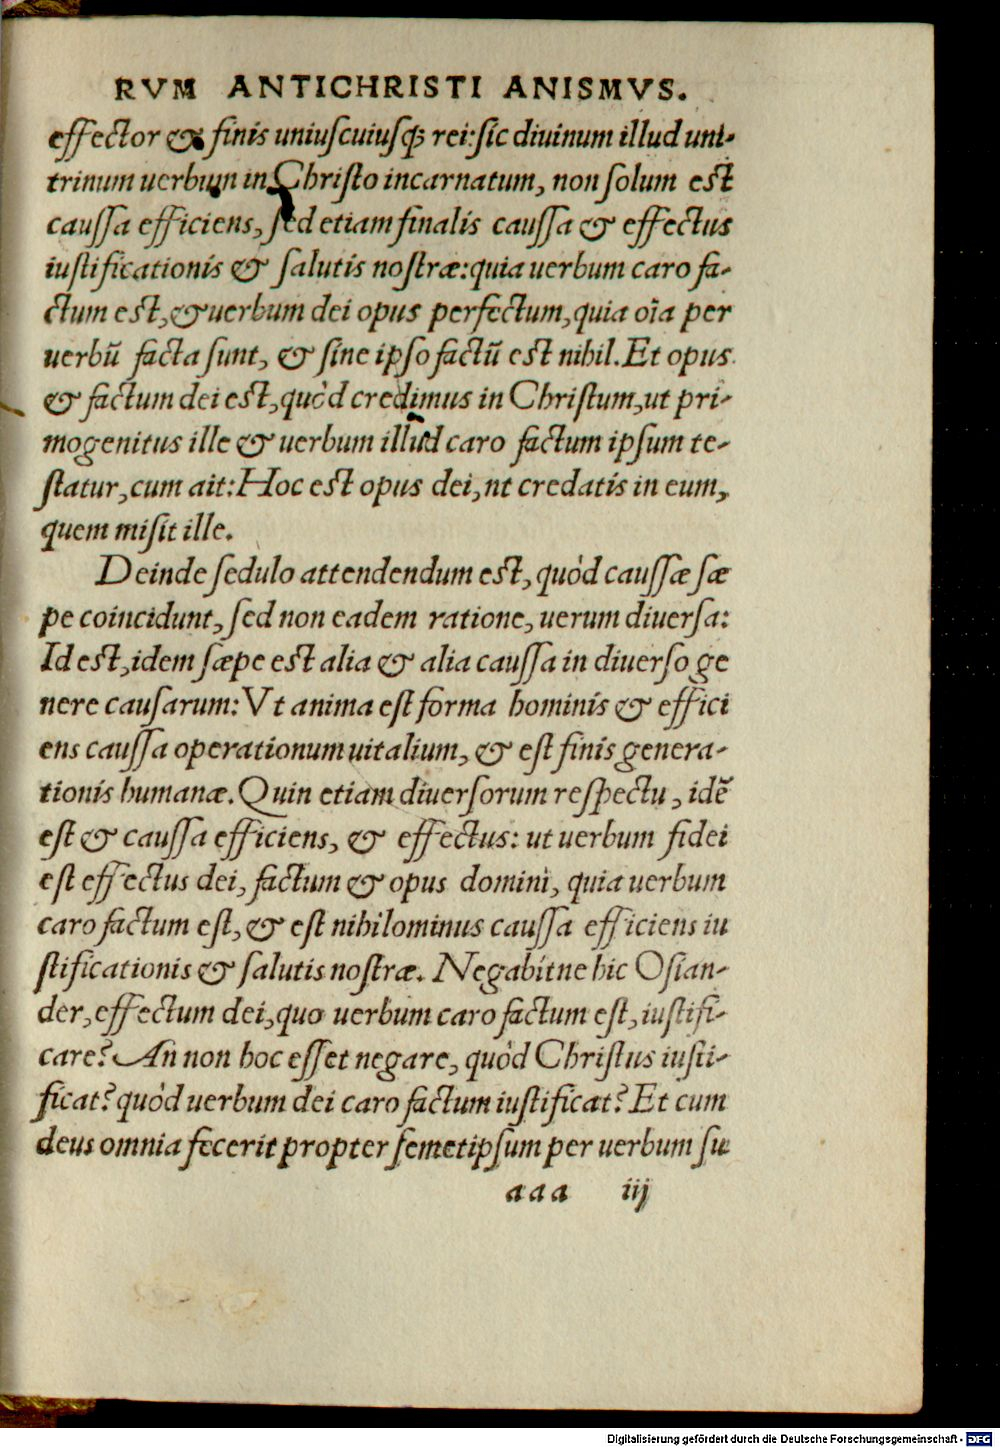 RVM ANTICHRISTI ANISMVS.
effector & finis uniuscuiusq́; rei: sic diuinum illud uni-
trinum uerbum in Christo incarnatum, non solum est
caussa efficiens, sed etiam finalis caussa & effectus
iustificationis & salutis nostræ: quia uerbum caro fa-
ctum est, & uerbum dei opus perfectum, quia oīa per
uerbū facta sunt, & sine ipso factū est nihil. Et opus
& factum dei est, quòd credimus in Christum, ut pri-
mogenitus ille & uerbum illud caro factum ipsum te-
statur, cum ait: Hoc est opus dei, nt credatis in eum,
quem misit ille.
Deinde sedulo attendendum est, quòd caussæ sæ
pe coincidunt, sed non eadem ratione, uerum diuersa:
Id est, idem sæpe est alia & alia caussa in diuerso ge
nere causarum: Vt anima est forma hominis & effici
ens caussa operationum uitalium, & est finis genera-
tionis humanæ. Quin etiam diuersorum respectu, idē
est & caussa efficiens, & effectus: ut uerbum fidei
est effectus dei, factum & opus domini, quia uerbum
caro factum est, & est nihilominus caussa efficiens iu
stificationis & salutis nostræ. Negabítne hic Osian-
der, effectum dei, quo uerbum caro factum est, iustifi-
care? An non hoc esset negare, quòd Christus iusti-
ficat? quòd uerbum dei caro factum iustificat? Et cum
deus omnia fecerit propter semetipsum per uerbum su
aaa iij
Digitalisierung gefördert durch die Deutsche Forschungsgemeinschaft - DFG